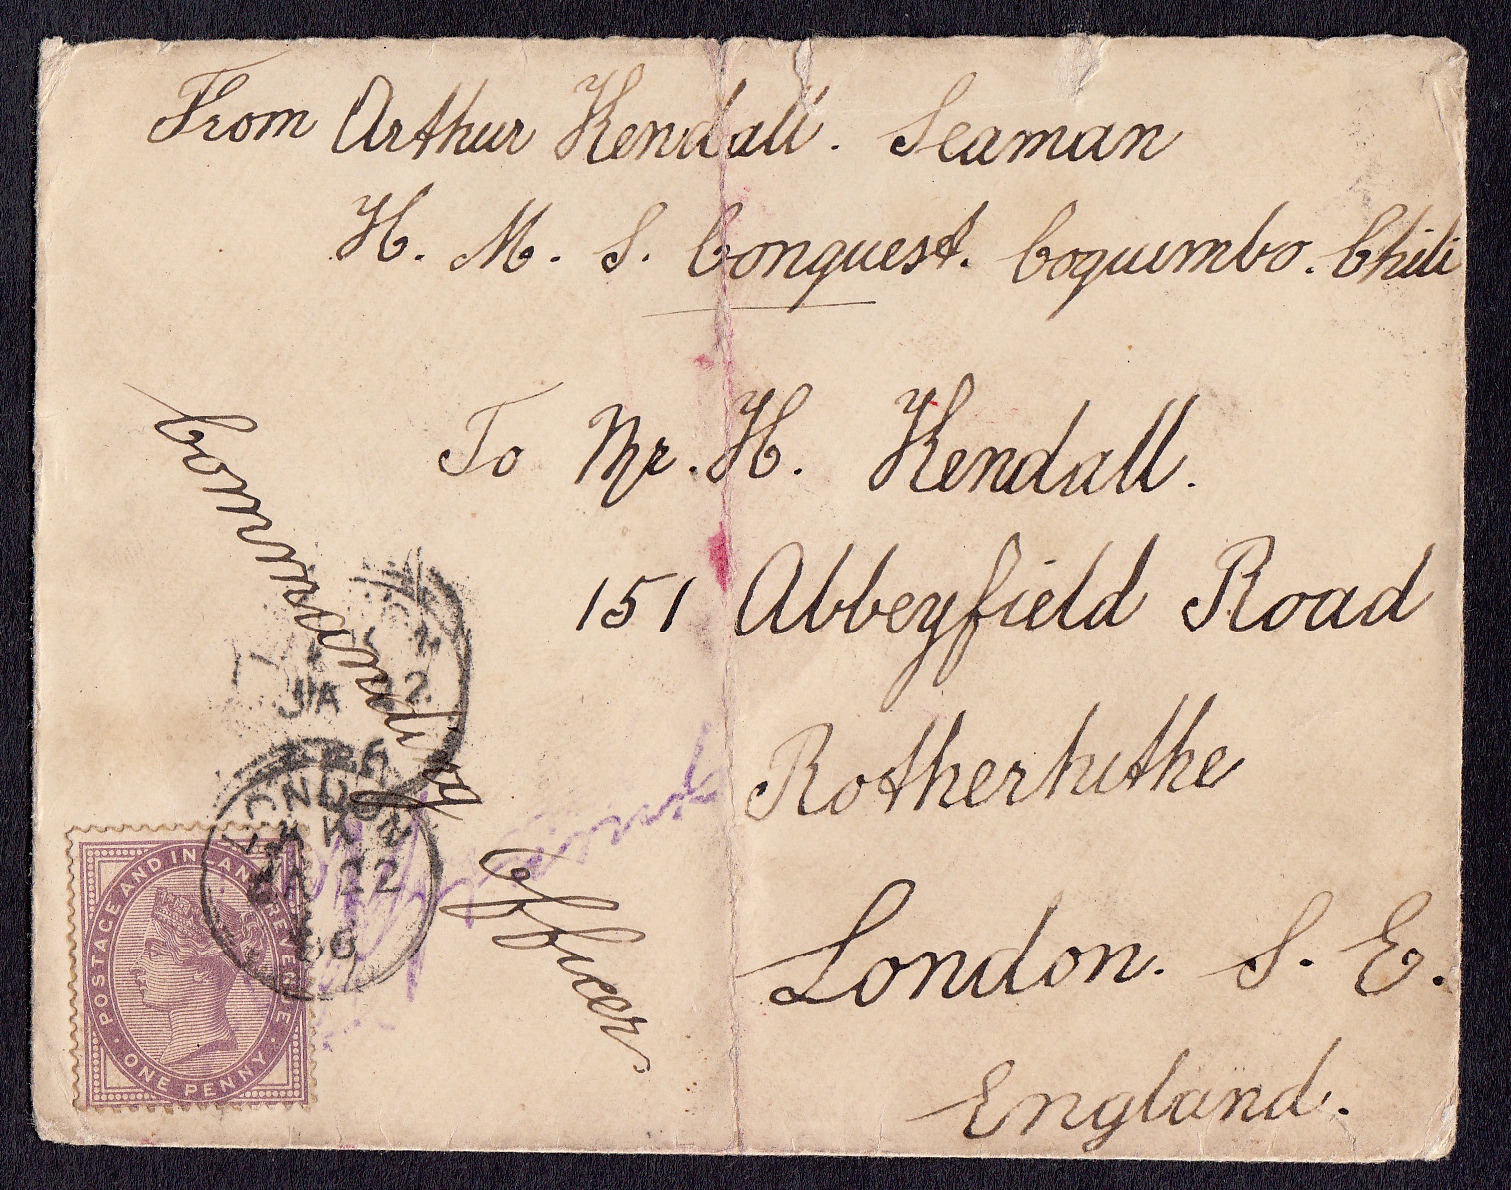 From Arthur Kendall. Seaman
H. M. S. Conquest. Coquimbo. Chili
To Mr. H. Kendall.
151 Abbeyfield Road
Rotherhithe
London. S. E.
England.
Commanding Officer
JA 22
LONDON
JA 22
POSTAGE AND INLAND REVENUE
ONE PENNY